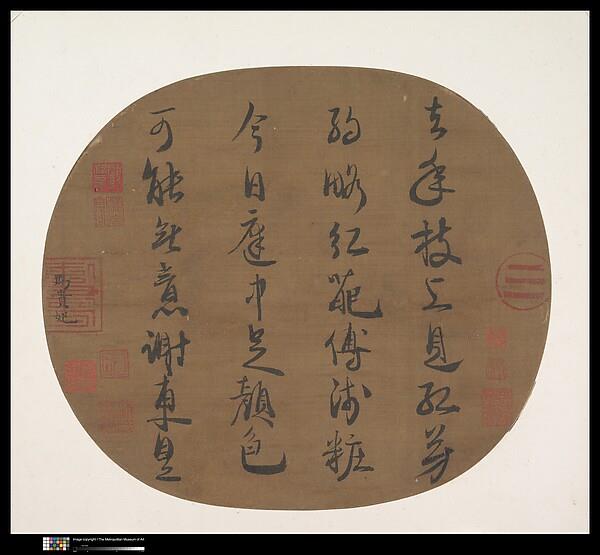 去年枝上見紅芳
約略紅葩傅淺粧
今日庭中足顏色
可能無意謝東皇
貴妃
Image copyright ©The Metropolitan Museum of Art